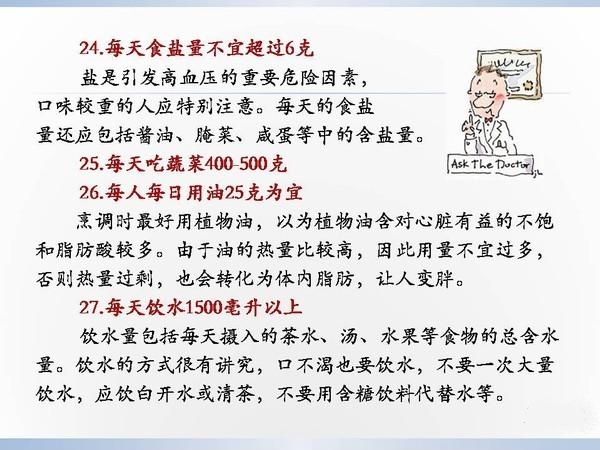 24.每天食盐量不宜超过6克
盐是引发高血压的重要危险因素，
口味较重的人应特别注意。每天的食盐
量还应包括酱油、腌菜、咸蛋等中的含盐量。
Ask The Doctor
25.每天吃蔬菜400-500克
26.每人每日用油25克为宜
烹调时最好用植物油，以为植物油含对心脏有益的不饱
和脂肪酸较多。由于油的热量比较高，因此用量不宜过多，
否则热量过剩，也会转化为体内脂肪，让人变胖。
27.每天饮水1500毫升以上
饮水量包括每天摄入的茶水、汤、水果等食物的总含水
量。饮水的方式很有讲究，口不渴也要饮水，不要一次大量
饮水，应饮白开水或清茶，不要用含糖饮料代替水等。